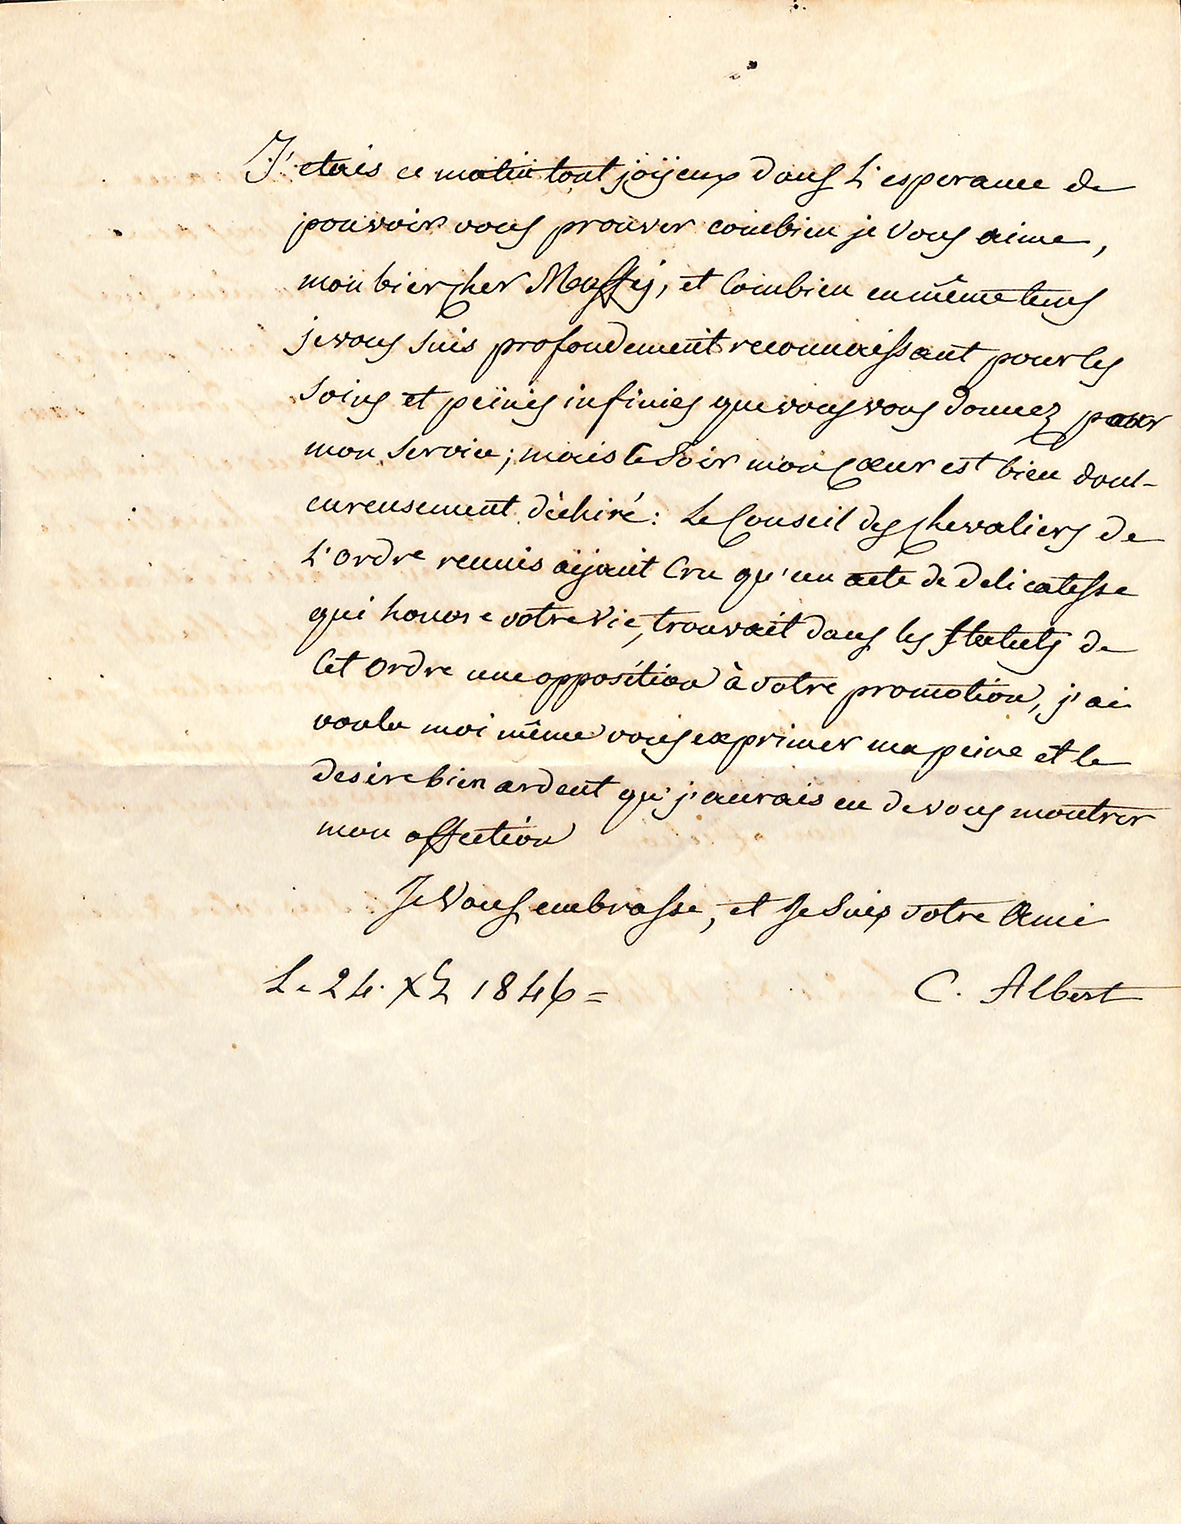 J'etais ce matin tout joÿeux dans l'esperance de
pouvoir vous prouver combien je vous aime,
mon bien cher Maffey, et combien en même tems
je vous suis profondement reconnaissant pour les
soins et peines infinies que vous vous donnez pour
mon service; mais le soir mon cœur est bien doul-
eureusement déchiré: Le Conseil des Chevaliers de
l'ordre reunis aÿant cru qu'un acte de delicatesse
qui honore votre vie, trouvait dans les statuts de
cet ordre une opposition à votre promotion, j'ai
voulu moi même vous exprimer ma peine et le
desire bien ardent qu'j'aurais eu de vous montrer
mon affection
Je vous embrasse, et je suis votre Ami
Le 24. X 1846=
C. Albert